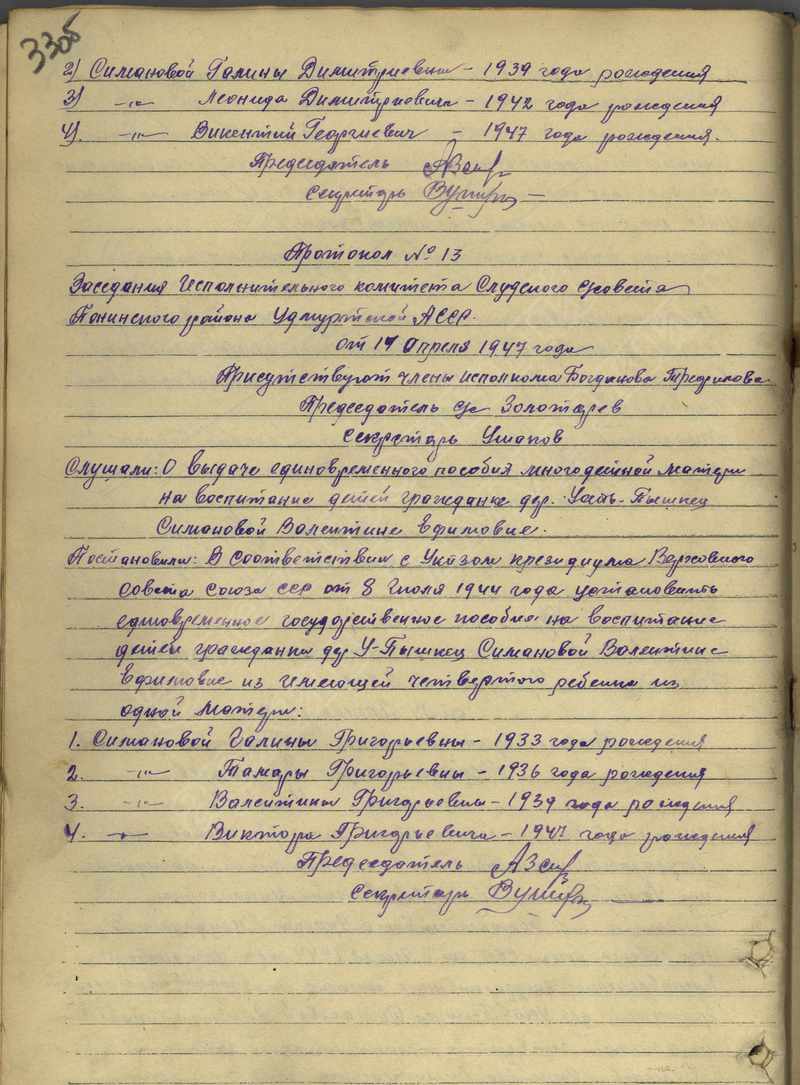 33об
2) Симановой Галины Димитриевны - 1939 года рождения
3) -"- Леонида Димитриевича - 1942 года рождения
4). -"- Викентий Георгиевич - 1947 года рождения.
Председатель
Секретарь
Протокол № 13
Заседания Исполнительного комитета Слудского с/совета
Понинского района Удмуртской АССР.
от 17 апреля 1947 года
Присутствуют члены исполкома Богданова
Председатель с/с Золотарев
Секретарь Ушаков
Слушали: О выдаче единовременного пособия многодетной матери
на воспитание детей гражданке дер. Усть-Пышкец
Симановой Валентине Ефимовне.
Постановили: В соответствии с Указом президиума Верховного
совета союза ССР от 8 Июля 1944 года установить
единовременное государственное пособие на воспитание
детей гражданки дер У-Пышкец Симановой Валентине
Ефимовне из имеющей четвертого ребенка из
одной матери:
1. Симановой Галины Григорьевны - 1933 года рождения
2. -"- Тамары Григорьевны - 1936 года рождения
3. -"- Валентины Григорьевны - 1939 года рождения
4. -"- Виктора Григорьевича - 1947 года рождения
Председатель
Секретарь